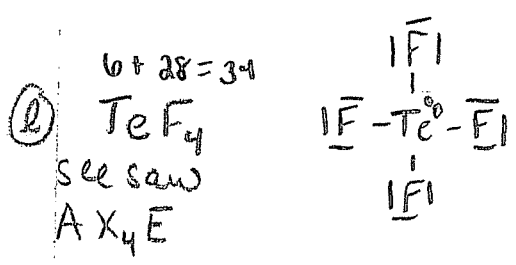 6 + 28 = 34
l TeF₄
see saw
AX₄E
|F|
|F - Te - F|
|F|